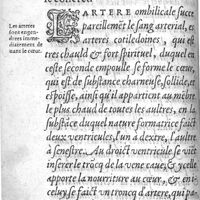 Les arteres
sont engen-
drees imme-
diatement de
uant le cœur.
L'ARTERE ombilicale succe
pareillemēt le sang arterial, es
arteres cotiledoines, qui est
tres chauld & fort spirituel, duquel
en ceste seconde empoulle se forme le cœur,
qui est de substāce charneuse, sollide, et
espoisse, ainsi qu'il appartient au mēbre
le plus chaud de toutes les autres, en la
substāce duquel nature formatrice faict
deux ventricules, l'un a dextre, l'autre
a senestre. Au droict ventricule se viēt
inserer le trōcq de la vene caue, & y este
apporte la nourriture au cœur, & en i-
celuy se faict un troncq d'artere, qui pa